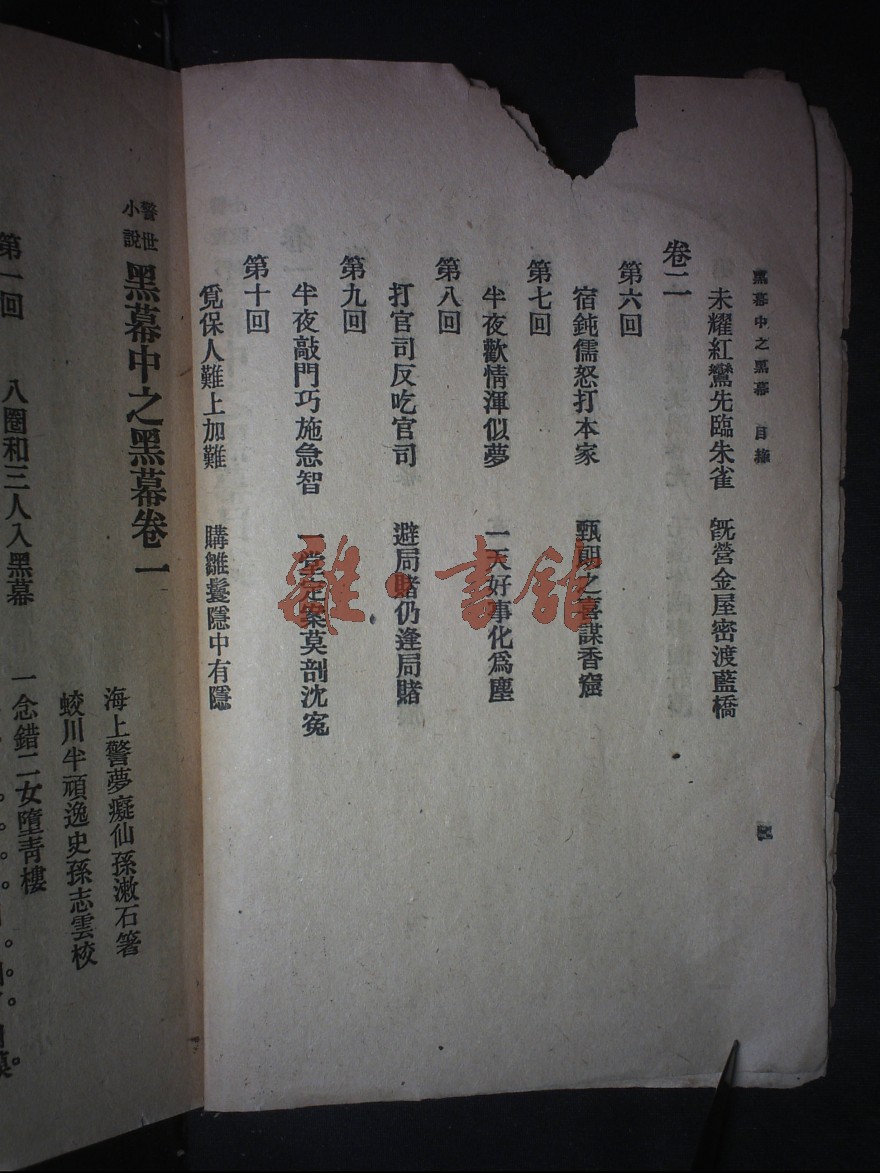 黑幕中之黑幕 目錄
未耀紅鸞先臨朱雀 旣營金屋密渡藍橋
卷二
第六回
宿鈍儒怒打本家 甄廟之喜謀香窟
第七回
半夜歡情渾似夢 一天好事化爲塵
第八回
打官司反吃官司 避局賭仍逢局賭
第九回
半夜敲門巧施急智 一堂定案莫剖沈寃
第十回
覓保人難上加難 購雛鬟隱中有隱
雜·書館
警世小說 黑幕中之黑幕卷一
海上警夢癡仙孫漱石箸
蛟川半頑逸史孫志雲校
第一回 八圈和三人入黑幕 一念錯二女墮靑樓